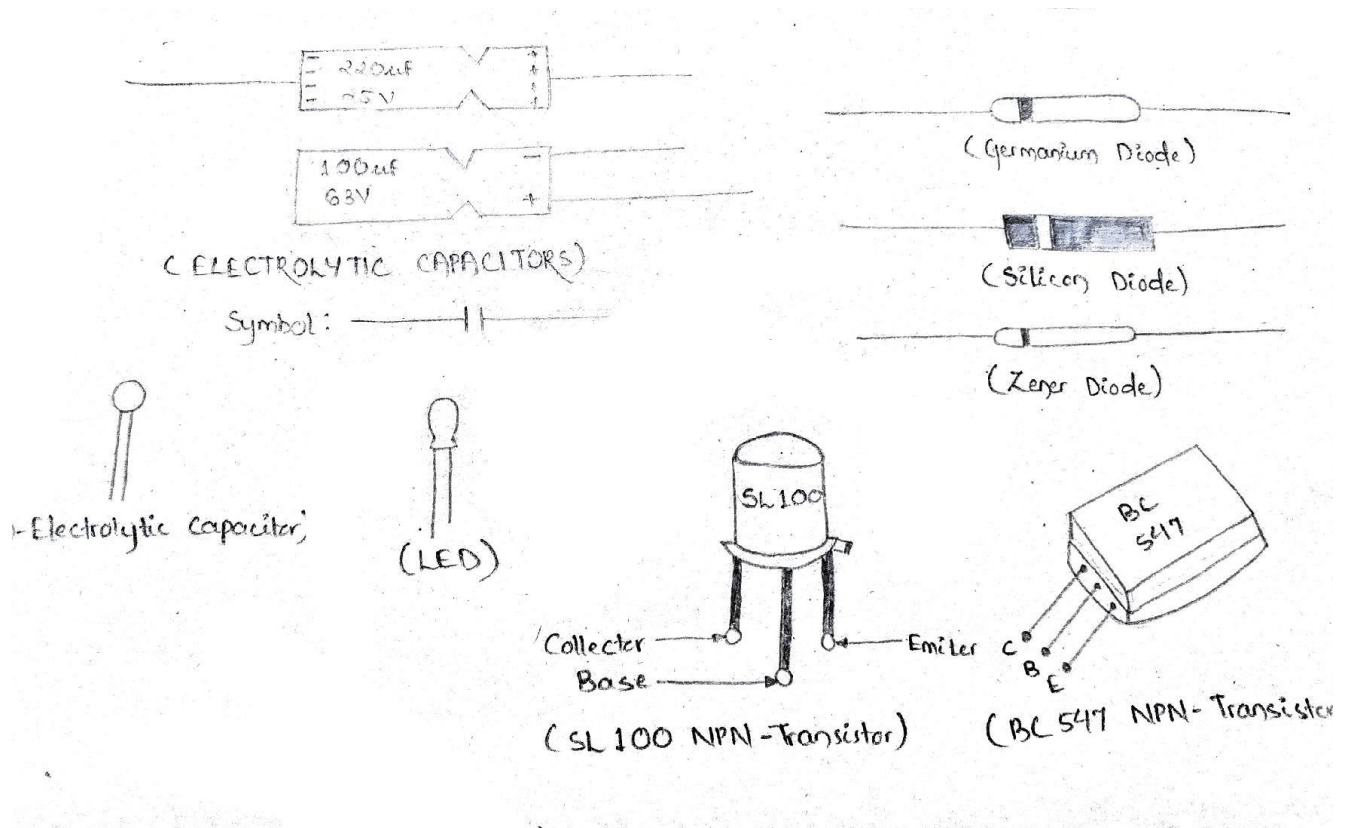 220uf
25V
100uf
63V
(ELECTROLYTIC CAPACITORS)
Symbol:
(Germanium Diode)
(Silicon Diode)
(Zener Diode)
-Electrolytic Capacitor,
(LED)
SL100
Collecter
Base
Emiter
(SL 100 NPN-Transistor)
BC
547
C
B
E
(BC 547 NPN-Transister